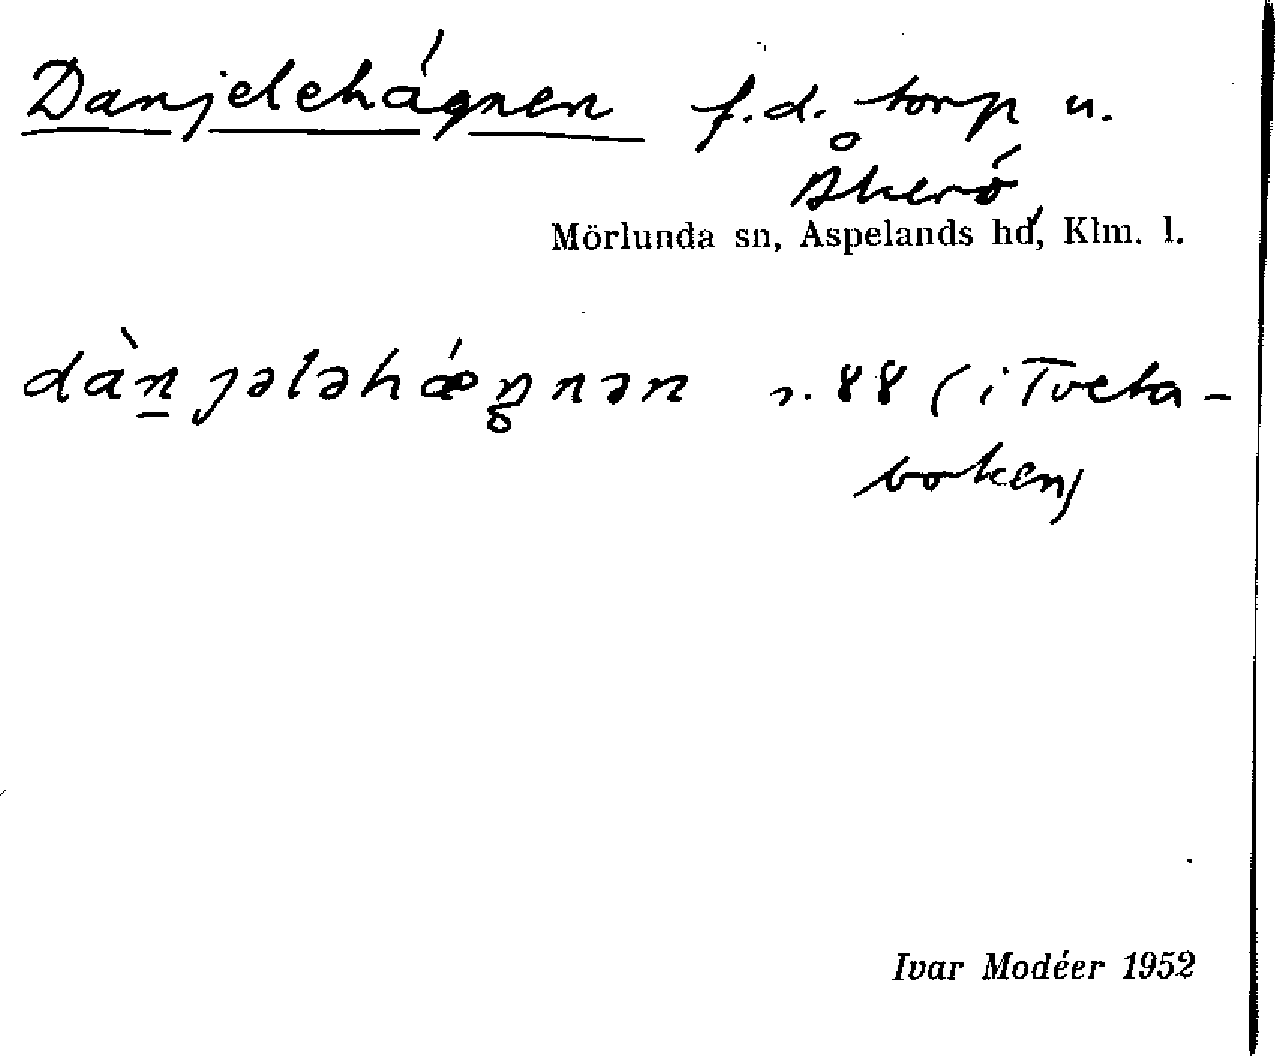 Danjelehágnen f.d. torp u.
Åkerö
Mörlunda sn, Aspelands hd, Klm. l.
dàn̲jələhǽŋnən s. 88 (i Tveta-
boken)
Ivar Modéer 1952